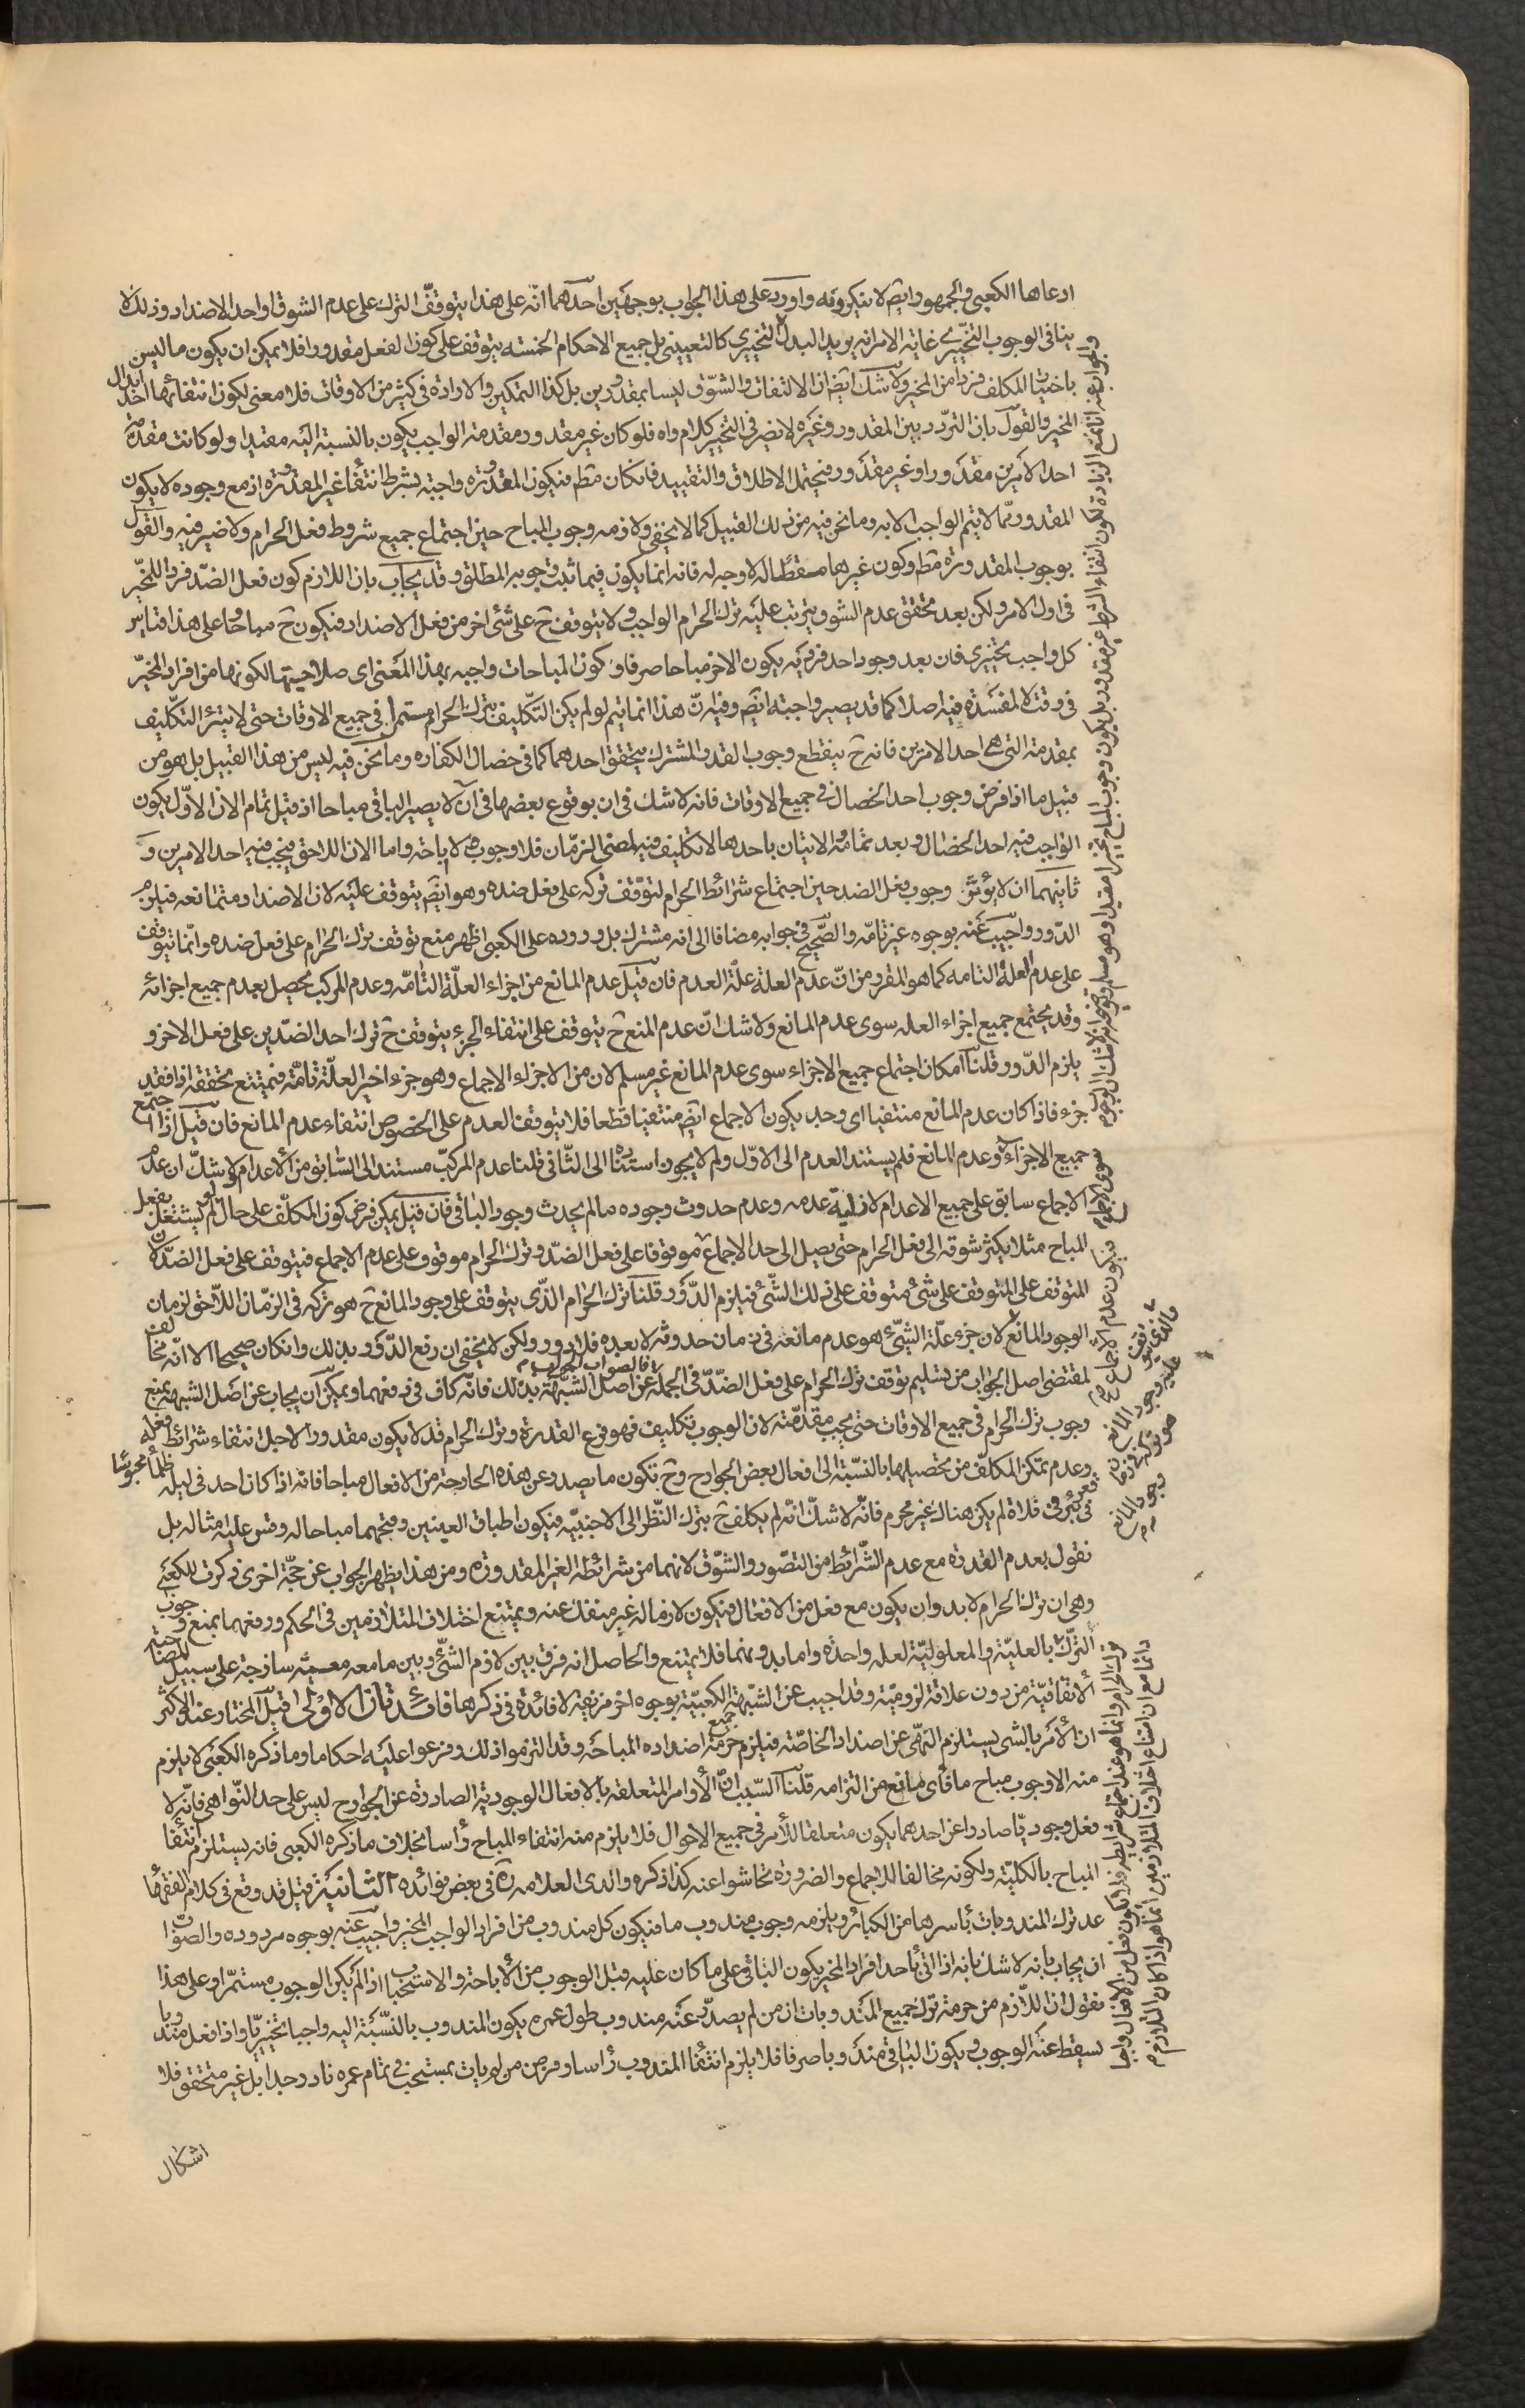 ادعاها الكعبي والجمهور ايضا لا ينكرونه واورد على هذا الجواب بوجهين احدهما انّه على هذا يتوقّف الترك على عدم الشوق او احد الاضداد وذلك لا
ينافي الوجوب التخييري غاية الامر انه يريد البدل التخييري كالتعييني بل جميع الاحكام الخمسه يتوقف على كون الفعل مقدورا فلا يمكن ان يكون ما ليس
باختيار المكلف فردا من المخير ولا شك ايضا ان الالتفات والشّوق ليسا بمقدورين بل كذا التمكين والارادة في كثير من الاوقات فلا معنى لكون انتفائهما احد ابدال
المخير والقول بان التردّد بين المقدور وغيره لا يضر في التخيير كلام واه فلو كان غير مقدور ومقدمة الواجب يكون بالنسبة اليه مقيدا ولو كانت مقدمة
احد الامرين مقدورا وغير مقدور فيحتمل الاطلاق والتقييد فان كان مط فيكون المقدورة واجبة بشرط انتفاء غير المقدورة اذ مع وجوده لا يكون
المقدور ممّا لا يتم الواجب الا به وما نحن فيه من ذلك القبيل كما لا يخفى ولازمه وجوب المباح حين اجتماع جميع شروط فعل الحرام ولا ضير فيه والقول
بوجوب المقدورة مط وكون غيرها مسقطا له لا وجه له فانه انما يكون فيما ثبت وجوبه المطلق وقد يجاب بان اللازم كون فعل الضدّ فردا للمخيّر
في اول الامر ولكن بعد تحقق عدم الشوق يترتب عليه ترك الحرام الواجب ولا يتوقف ح على شئ اخر من فعل الاضداد فيكون ح مباحا وعلى هذا قياس
كل واجب تخييري فان بعد وجود احد فرديه يكون الاخر مباحا صرفا وكون المباحات واجبه بهذا المعنى اى صلاحيتها لكونها من افراد المخيّر
في وقت لا مفسدة فيه اصلا كما قد يصير واجبة ايضا وفيه انّ هذا انما يتم لو لم يكن التكليف بترك الحرام مستمرا في جميع الاوقات حتى لا يتبرء التكليف
بمقدمته التى هي احد الامرين فانه ح ينقطع وجوب القدر المشترك بتحقق احدهما كما في خصال الكفاره وما نحن فيه ليس من هذا القبيل بل هو من
قبيل ما اذا فرض وجوب احد الخصال في جميع الاوقات فانه لا شك في ان بوقوع بعضها في آن لا يصير الباقي مباحا اذ قبل تمام الان الاوّل يكون
الواجب فيه احد الخصال وبعد تمامه الاتيان باحدها لا تكليف فيه لمضى الزمان فلا وجوب ولا اباحة واما الان اللاحق فيجب فيه احد الامرين و
ثانيهما ان لا يؤثر وجوب فعل الضد حين اجتماع شرائط الحرام لتوقّف تركه على فعل ضده وهو ايضا يتوقف عليه لان الاضداد متمانعه فيلزم
الدّور واجيب عنه بوجوه غير تامّه والصّحيح في جوابه مضافا الى انه مشترك بل وروده على الكعبي اظهر منع توقف ترك الحرام على فعل ضده وانّما يتوقف
على عدم العلة التامه كما هو المقرر من انّ عدم العلة علّة العدم فان قيل عدم المانع من اجزاء العلّة التامّه وعدم المركب يحصل بعدم جميع اجزائه
وقد يجتمع جميع اجزاء العله سوى عدم المانع ولا شك انّ عدم المنع ح يتوقف على انتفاء الجزء يتوقف ح ترك احد الضدّين على فعل الاخر و
يلزم الدّور قلنا امكان اجتماع جميع الاجزاء سوى عدم المانع غير مسلم لان من الاجزاء الاجماع وهو جزء اخير العلّة تامّة فيمتنع تحققه اذا فقد
جزء فاذا كان عدم المانع منتفيا اى وجد يكون الاجماع ايضا منتفيا قطعا فلا يتوقف العدم على الخصوص انتفاء عدم المانع فان قيل اذا اجتمع
جميع الاجزاء وعدم المانع فلم يستند العدم الى الاوّل ولم لا يجوز استناده الى الثاني قلنا عدم المركّب مستند الى السّابق من الاعدام ولا شكّ ان عدم
الاجماع سابق على جميع الاعدام لازلية عدمه وعدم حدوث وجوده ما لم يحدث وجود الباقي فان قيل يمكن فرض كون المكلّف على حال لو لم يشتغل بفعل
المباح مثلا يكثر شوقه الى فعل الحرام حتى يصل الى حد الاجماع موقوفا على فعل الضدّ وترك الحرام موقوف على عدم الاجماع فيتوقف على فعل الضدّ لان
المتوقف على المتوقف على شئ متوقف على ذلك الشّئ فيلزم الدّور قلنا ترك الحرام الذّى يتوقف على وجود المانع ح هو تركه في الزمان اللاحق لزمان
الوجود المانع لان جزء علّة الشئ هو عدم مانعه في زمان حدوثه لا بعده فلا دور ولكن لا يخفى ان رفع الدّور بذلك وان كان صحيحا الا انّه مخالف
لمقتضى اصل الجواب من تسليم توقف ترك الحرام على فعل الضدّ في الجملة فالصواب الجواب عن اصل الشّبهة بذلك فانّه كاف في دفعهما ويمكن ان يجاب عن اصل الشبهه بمنع
وجوب ترك الحرام في جميع الاوقات حتى يجب مقدمته لان الوجوب تكليف فهو فرع القدرة وترك الحرام قد لا يكون مقدورا لاجل انتفاء شرائط فعله
وعدم تمكن المكلّف من تحصيلها بالنسبّة الى افعال بعض الجوارح وح تكون ما يصدر عن هذه الجارحة من الافعال مباحا فانه اذا كان احد في ليله ظلماء محبوسا
في قعر بئر في فلاة لم يكن هناك غير محرم فانّه لا شكّ انّه لم يكلف ح بترك النّظر الى الاجنبيّه فيكون اطباق العينين وفتحهما مباحا له وقس عليه مثاله بل
نقول بعدم القدرة مع عدم الشّرائط من التصّور والشّوق لانهما من شرائطه الغير المقدوره ومن هذا يظهر الجواب عن حجّة اخرى ذكرت للكعبي
وهي ان ترك الحرام لابد وان يكون مع فعل من الافعال فيكون لازما له غير منفك عنه ويمتنع اختلاف المتلازمين في الحكم ورفعهما بمنع وجوب
الترك بالعليّة والمعلوليّة لعلة واحدة واما بدونهما فلا يمتنع والحاصل انه فرق بين لازم الشئ وبين ما معه معيّة ساذجة على سبيل المصاحبة
الاتفاقيّة من دون علاقة لزوميّة وقد اجيب عن الشّبهة الكعبيّة بوجوه اخر مزيفة لا فائدة في ذكرها فائدتان الاولى قيل المختار عند الاكثر
ان الامر بالشى يستلزم النهّى عن اضداد الخاصّة فيلزم حرمة جميع اضداده المباحة وقد التزموا ذلك وفرعوا عليه احكاما وما ذكره الكعبي لا يلزم
منه الا وجوب مباح ما فأى مانع من التزامه قلنا السّبب انّ الأوامر المتعلقه بالافعال الوجودية الصادرة عن الجوارح ليس على حد النّواهى فانّه لا
فعل وجوديّا صادرا عن احدهما يكون متعلقا للأمر في جميع الاحوال فلا يلزم منه انتفاء المباح رأسا بخلاف ما ذكره الكعبي فانه يستلزم انتفاء
المباح بالكليّة ولكونه مخالفا للاجماع والضرورة تحاشوا عنه كذا ذكره والدى العلامه ره في بعض فوائده الثانية قيل قد وقع في كلام الفقهاء
عد ترك المندوبات بأسرها من الكبائر ويلزمه وجوب مندوب ما فيكون كل مندوب من افراد الواجب المخير واجيب عنه بوجوه مردوده والصواب
ان يجاب بانه لا شك بانه اذا اتى بأحد افراد المخير يكون الباقي على ما كان عليه قبل الوجوب من الاباحة والاستحباب اذا لم يكن الوجوب مستمرّا وعلى هذا
نقول ان اللازم من حرمة ترك جميع المندوبات ان من لم يصدر عنه مندوب طول عمره يكون المندوب بالنسّبة اليه واجبا تخييريّا واذا فعل مندوبا
سقط عنه الوجوب ويكون الباقي مندوبا صرفا فلا يلزم انتفاء المندوب رأسا وفرض من لم يات بمستحب في تمام عمره نادر جدا بل غير متحقق فلا
اشكال